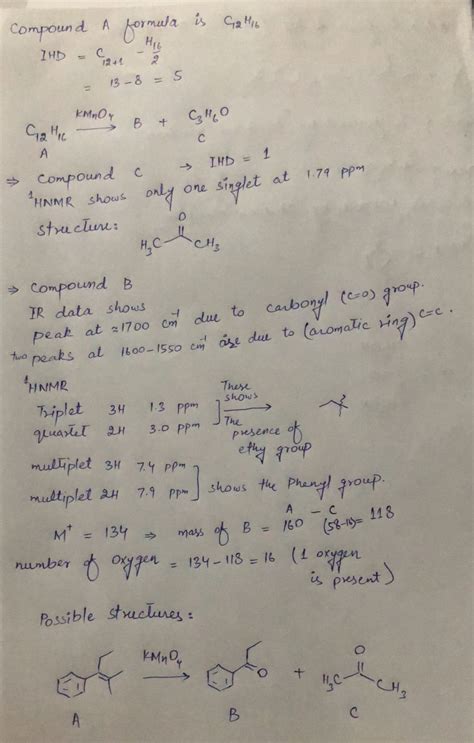 Compound A formula is C12H16
IHD = C12+1 - H16/2
= 13 - 8 = 5
C12H16 KMnO4 → B + C3H6O
A C
⇒ Compound C → IHD = 1
1HNMR shows only one singlet at 1.79 ppm
structure:
O
H3C CH3
⇒ Compound B
IR data shows
peak at ≈1700 cm-1 due to carbonyl (C=O) group.
two peaks at 1600-1550 cm-1 are due to (aromatic ring) C=C.
1HNMR
Triplet 3H 1.3 ppm
quartet 2H 3.0 ppm
These shows
The presence of ethy group
multiplet 3H 7.4 ppm
multiplet 2H 7.9 ppm
shows the Phenyl group.
M+ = 134 ⇒ mass of B = A 160 - C (58-16) = 118
number of oxygen = 134-118 = 16 (1 oxygen
is present)
Possible structures:
KMnO4 → O + O
H3C CH3
A B C